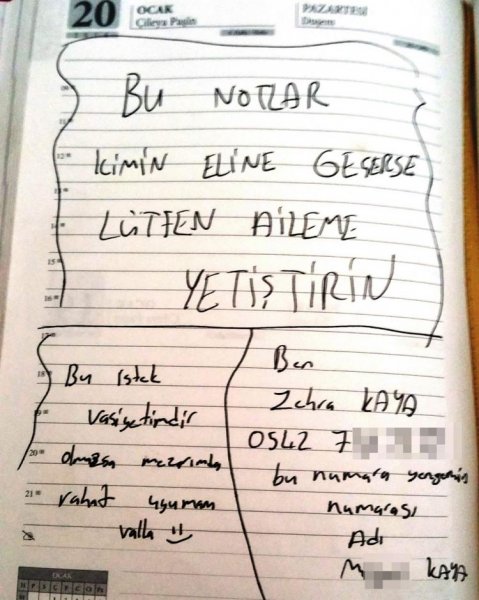 20
OCAK
Çileya Paşin
PAZARTESİ
Duşem
BU NOTLAR
KİMİN ELİNE GEÇERSE
LÜTFEN AİLEME
YETİŞTİRİN
Bu istek
vasiyetimdir
olmazsa mezarımda
rahat uyumam
valla
Ben
Zehra KAYA
0542 7
bu numara yengemin
numarası
Adı
M KAYA
OCAK